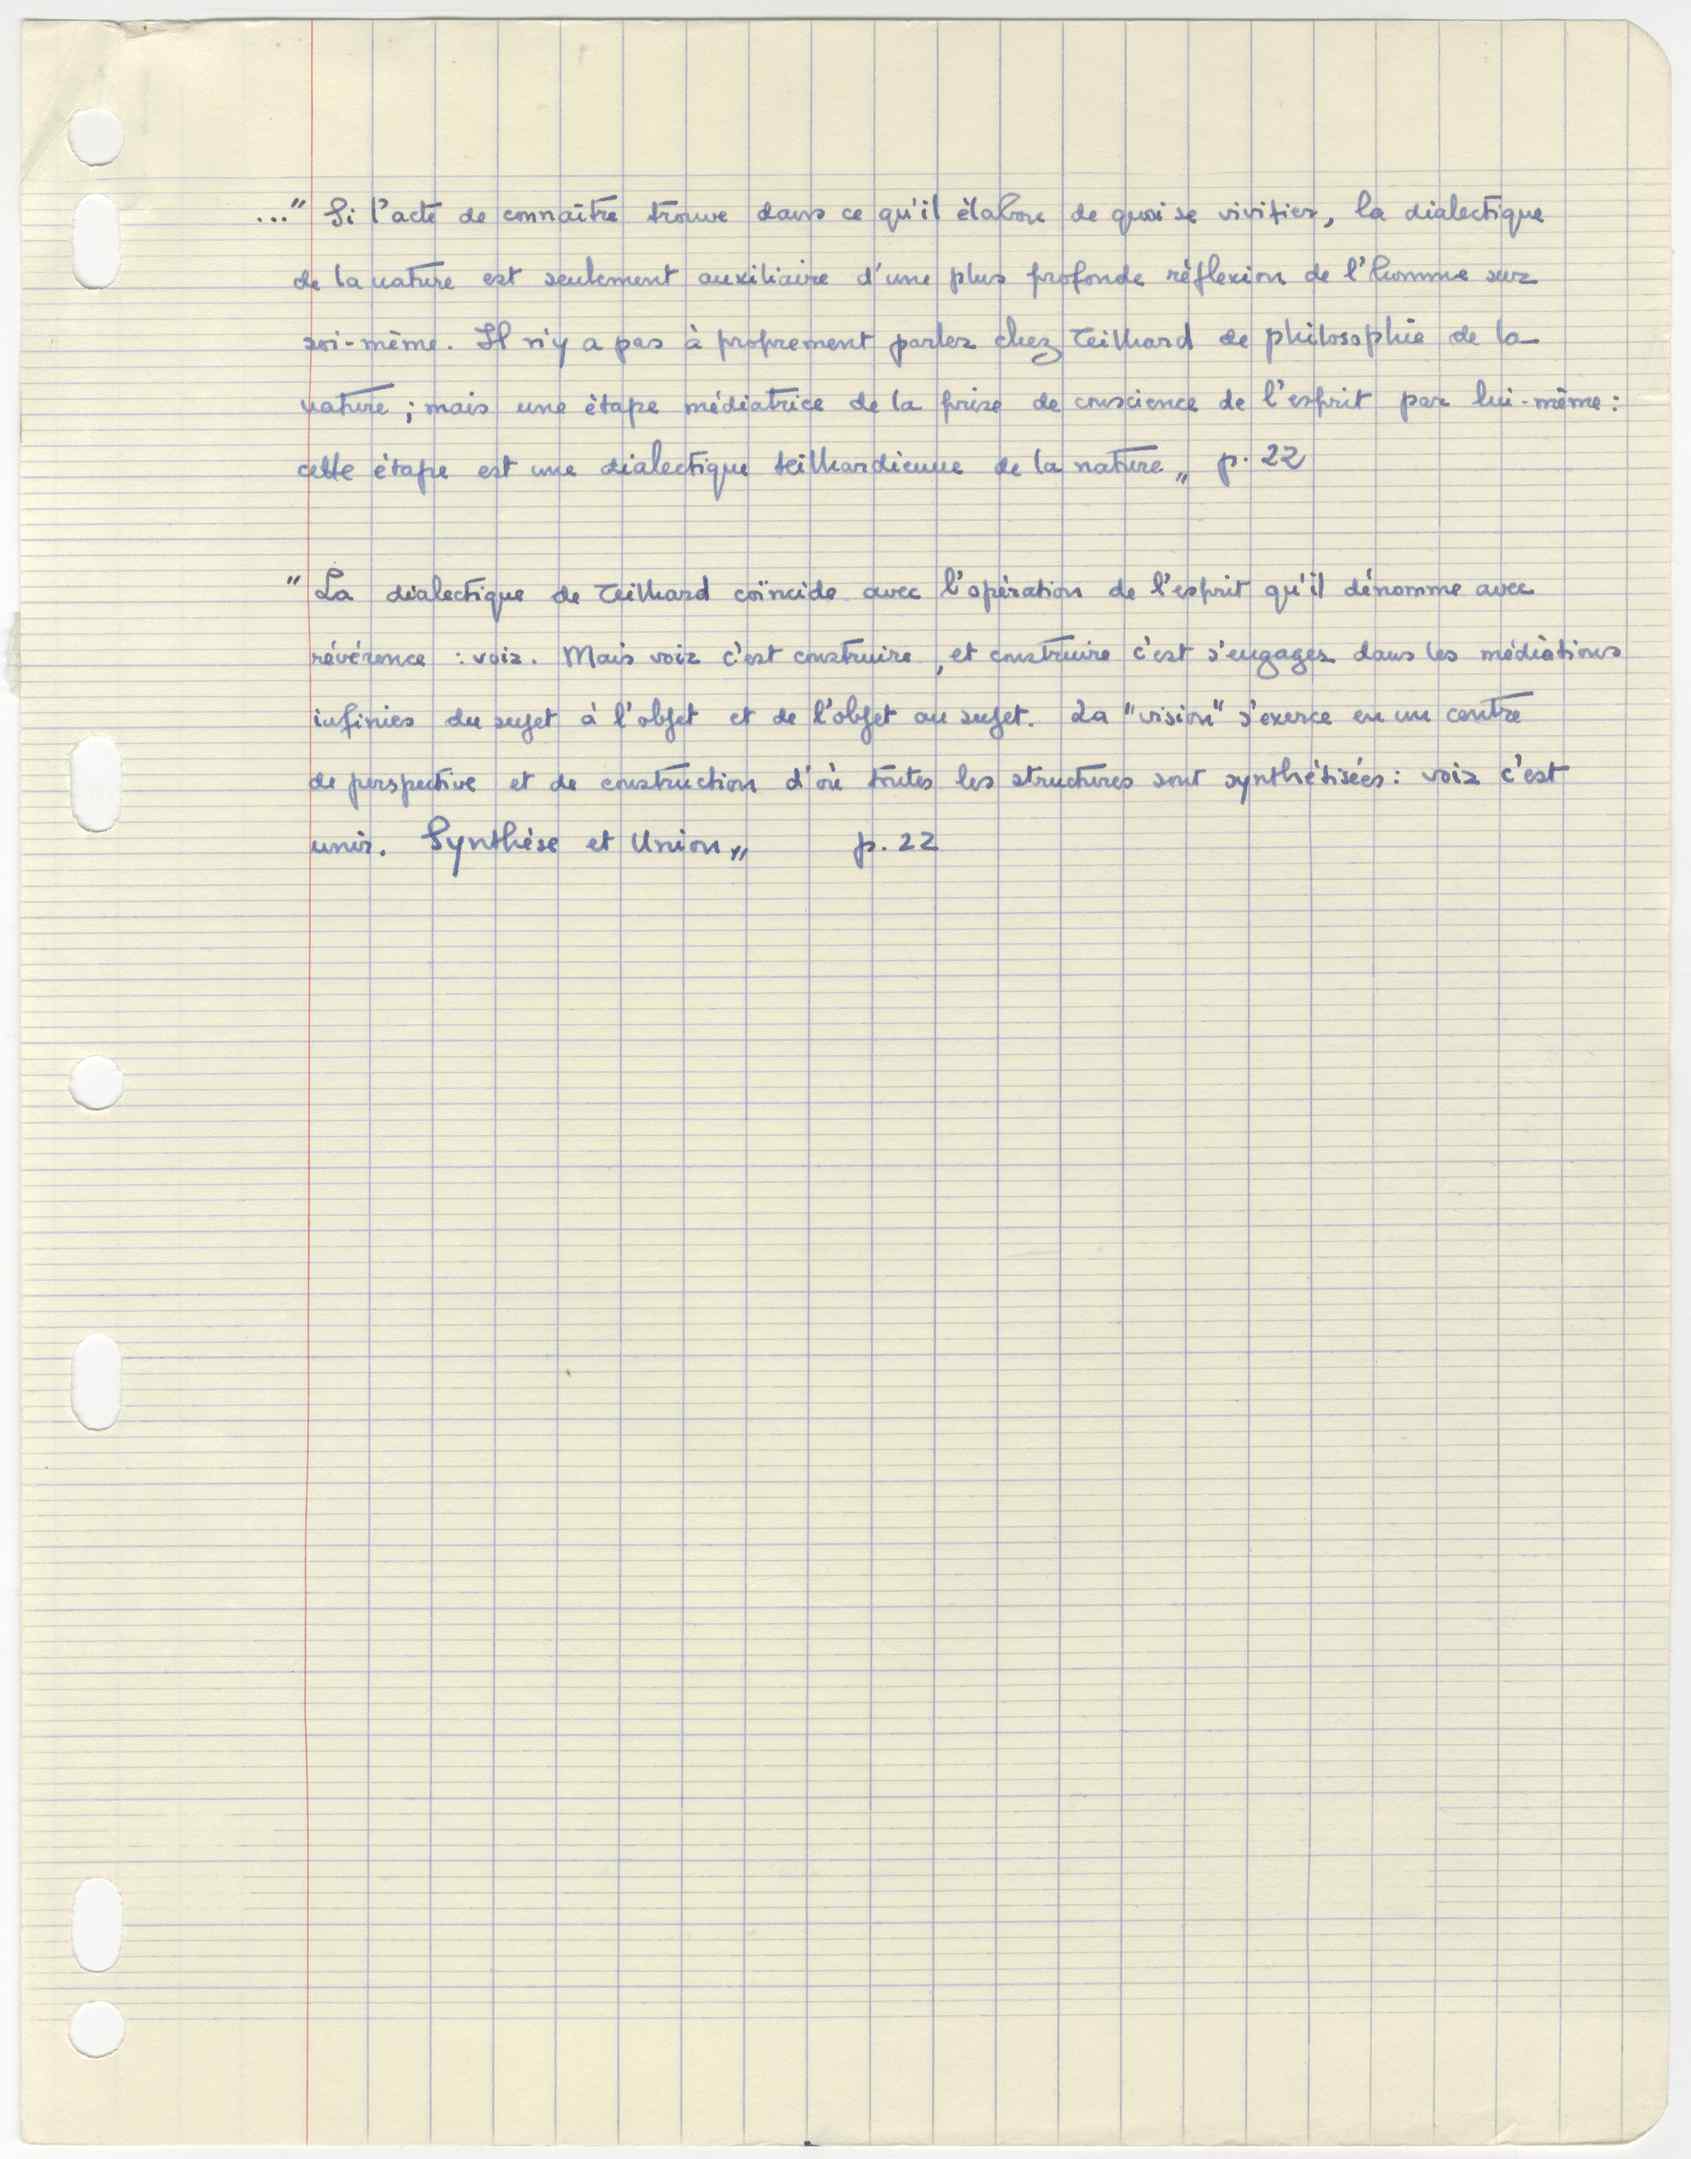 ..." Si l'acte de connaître trouve dans ce qu'il élabore de quoi se vivifier, la dialectique
de la nature est seulement auxiliaire d'une plus profonde réflexion de l'homme sur
soi-même. Il n'y a pas à proprement parler chez Teilhard de philosophie de la
nature ; mais une étape médiatrice de la prise de conscience de l'esprit par lui-même :
cette étape est une dialectique teilhardienne de la nature „ p. 22
" La dialectique de Teilhard coïncide avec l'opération de l'esprit qu'il dénomme avec
révérence : voir. Mais voir c'est construire, et construire c'est s'engager dans les médiations
infinies du sujet à l'objet et de l'objet au sujet. La "vision" s'exerce en un centre
de perspective et de construction d'où toutes les structures sont synthétisées : voir c'est
unir. Synthèse et Union „ p. 22